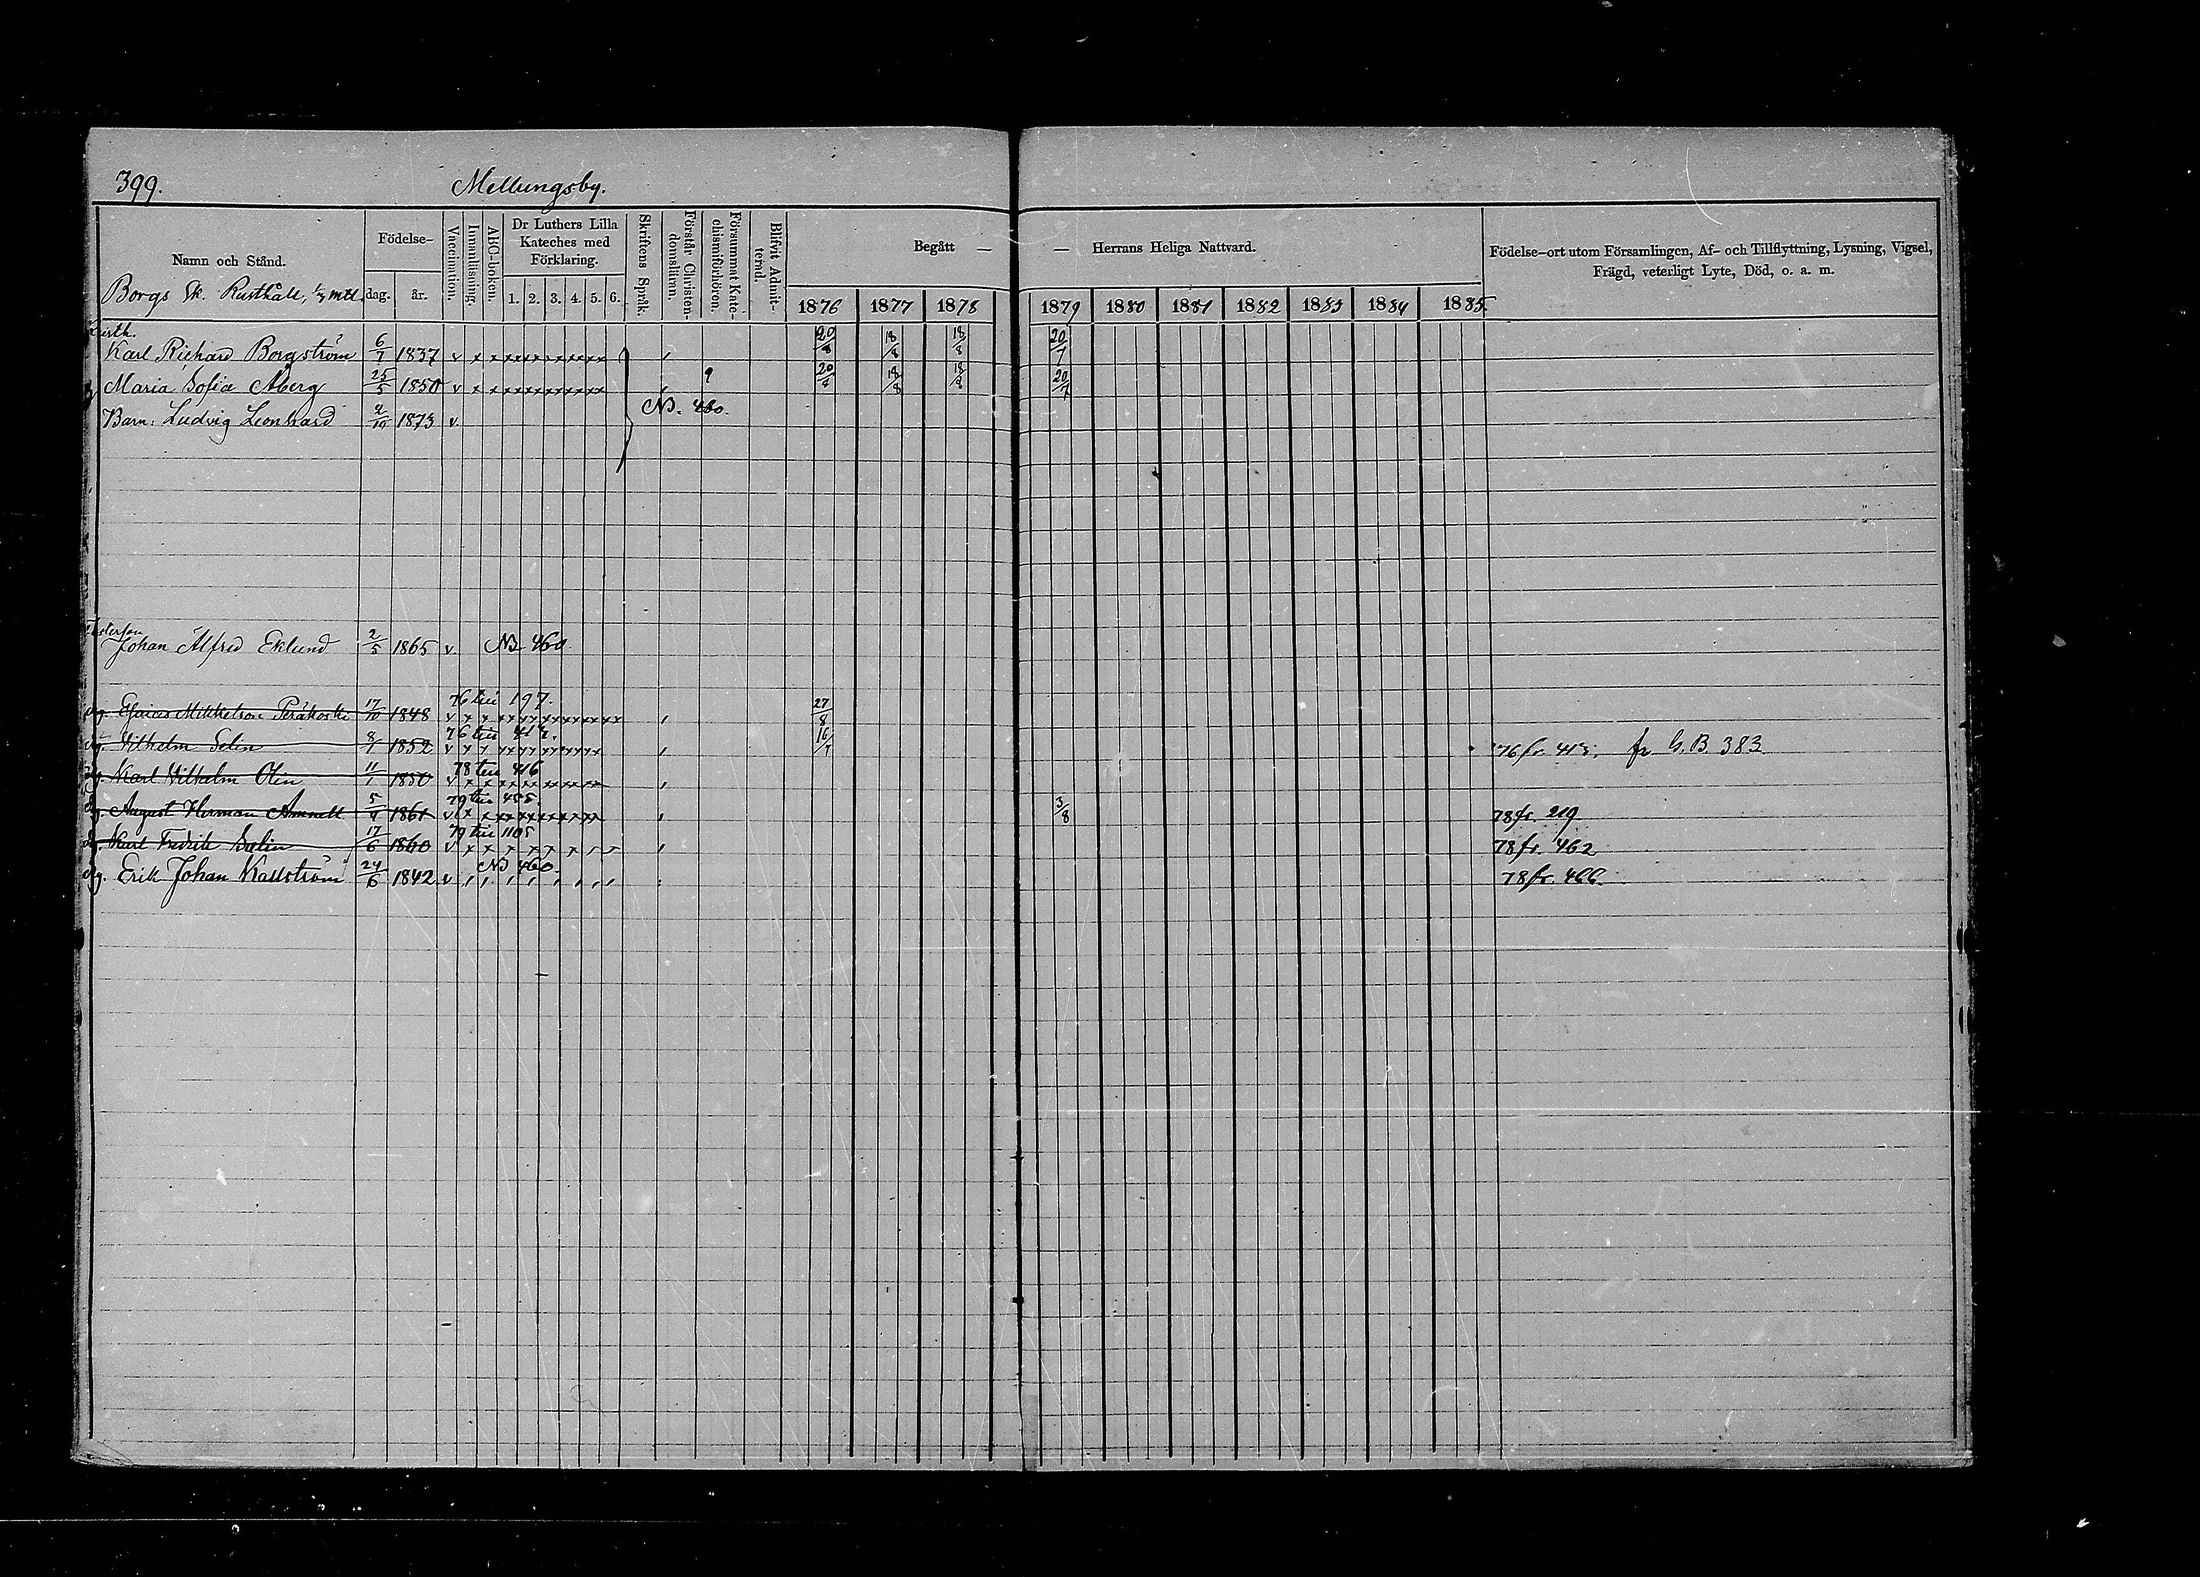 399. Mellungsby.
Namn och Stånd. Födelse- dag. år. Vaccination. Innanläsning. ABC-boken. Dr Luthers Lilla Kateches med Förklaring. 1. 2. 3. 4. 5. 6. Skriftens Språk. Förstår Christendomsläran. Försummat Katechismiförhören. Blifvit Admitterad. Begått — — Herrans Heliga Nattvard. 1876 1877 1878 1879 1880 1881 1882 1883 1884 1885. Födelse-ort utom Församlingen, Af- och Tillflyttning, Lysning, Vigsel, Frägd, veterligt Lyte, Död, o. a. m.
Borgs Sk. Rusthåll, mtl.
Karl Richard Borgström 6/7 1837 v x x x x x x x x x x x , 20/8 18/8 18/8 20/7
Maria Sofia Åberg 25/5 1850 v x x x x x x x x x x x , 9 20/8 18/8 18/8 20/7
Barn: Ludvig Leonhard 2/10 1873 v NB. 460.
Johan Alfred Eklund 2/5 1865 v. NB 460.
Mikkelson Peräkoski 17/10 1848 76 till 197. v x x x x x x x x x x x x , 27/8
Vilhelm Selin 8/1 1852 76 till 417. v x x x x x x x x x x x , 16/7 76 fr. 413. fr G.B. 383
Karl Vilhelm Olin 11/1 1850 78 till 416 v x x x x x x x x x x x ,
August Herman Amnell 5/4 1861 79 till 455. v x x x x x x x x x x x , 3/8 78 fr. 219
Karl Fredrik Selin 17/6 1860 79 till 1105 v x x x x x x x , 78 fr. 462
Erik Johan Kallström 24/6 1842 v NB 460. 78 fr. 466.